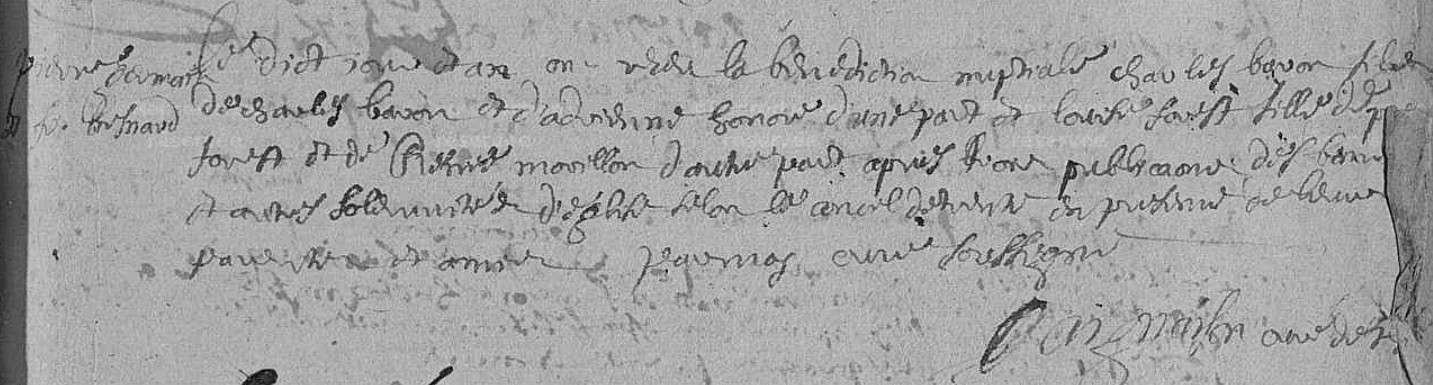 Le dict jour et an ont receu la benediction nuptiale charles baron filz
de charles baron et d'adrienne honore d'une part et louise forest fille de
forest et de morillon d'autre part apres trois publications des bans
et autres solemnités d'eglise selon le concil de trente en presence de leurs
parents et amis par moy curé soussigné
curé